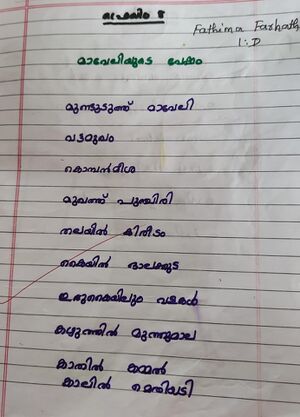 Fathima Farhath
1:D
മാവേലിയുടെ വേഷം
മുണ്ടുടുത്ത് മാവേലി
വട്ടമുഖം
കൊമ്പൻമീശ
മുഖത്ത് പുഞ്ചിരി
തലയിൽ കിരീടം
കൈയിൽ ഓലക്കുട
ഇരുകൈയിലും വളകൾ
കഴുത്തിൽ മുത്തുമാല
കാതിൽ കമ്മൽ
കാലിൽ മെതിയടി